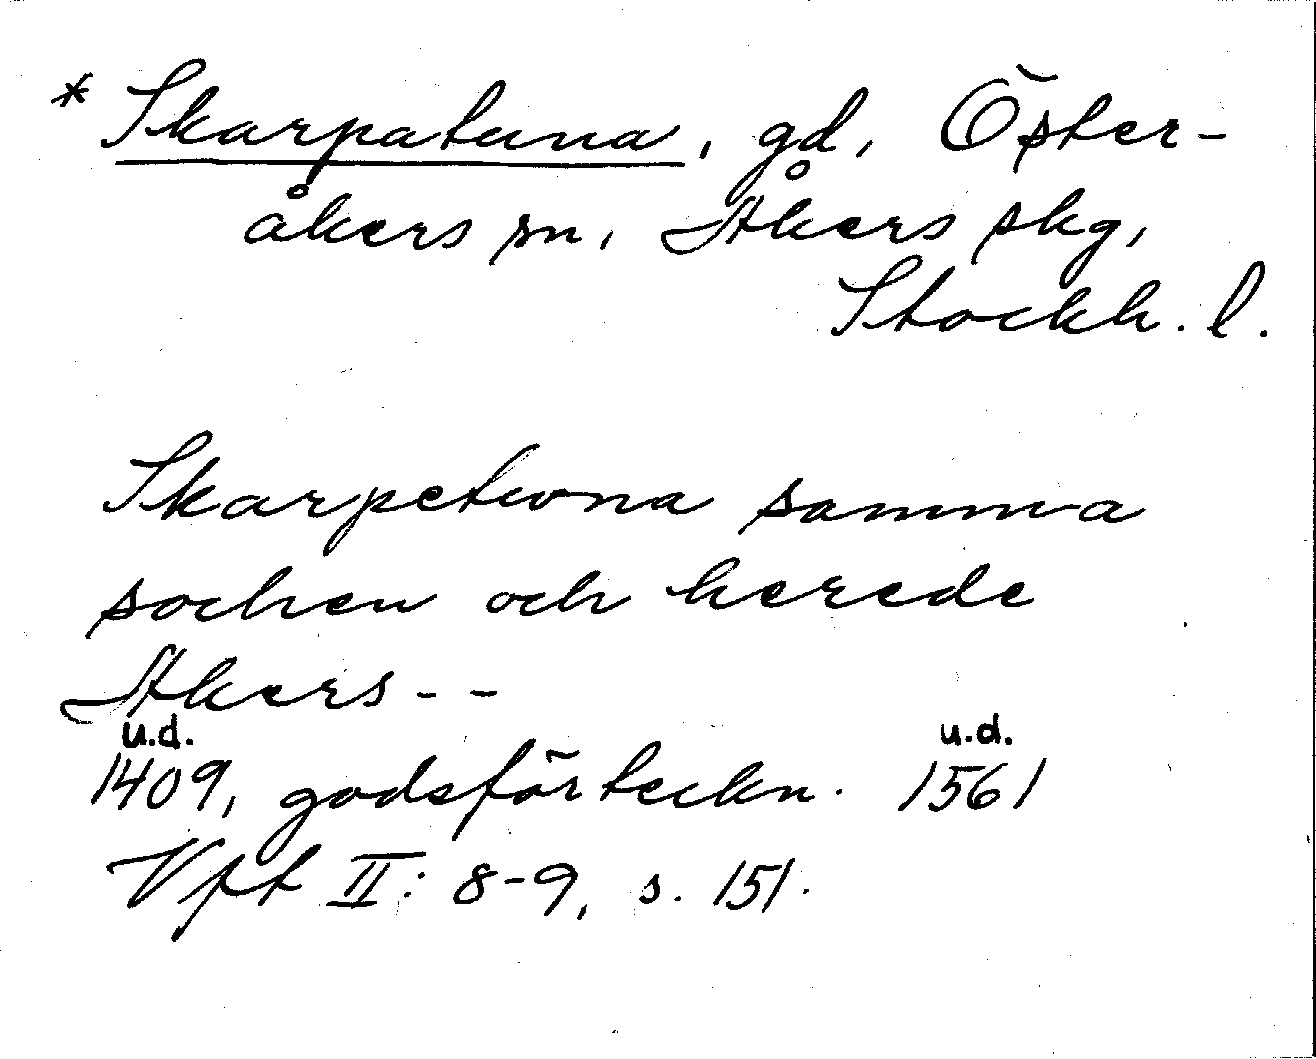 * Skarpatuna, gd, Öster-
åkers sn, Åkers skg,
Stockh. l.
Skarpetwna samma
sochen och herede
Akers - -
u.d. u.d.
1409, godsförteckn. 1561
Vft II: 8-9, s. 151.